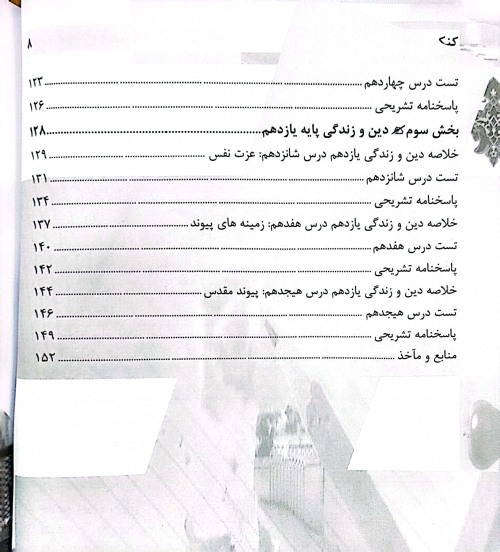 کنکـ ۸
تست درس چهاردهم ۱۲۳
پاسخنامه تشریحی ۱۲۶
بخش سوم دین و زندگی پایه یازدهم ۱۲۸
خلاصه دین و زندگی یازدهم درس شانزدهم: عزت نفس ۱۲۹
تست درس شانزدهم ۱۳۱
پاسخنامه تشریحی ۱۳۴
خلاصه دین و زندگی یازدهم درس هفدهم: زمینه های پیوند ۱۳۷
تست درس هفدهم ۱۴۰
پاسخنامه تشریحی ۱۴۲
خلاصه دین و زندگی یازدهم درس هیجدهم: پیوند مقدس ۱۴۴
تست درس هیجدهم ۱۴۶
پاسخنامه تشریحی ۱۴۹
منابع و مآخذ ۱۵۲